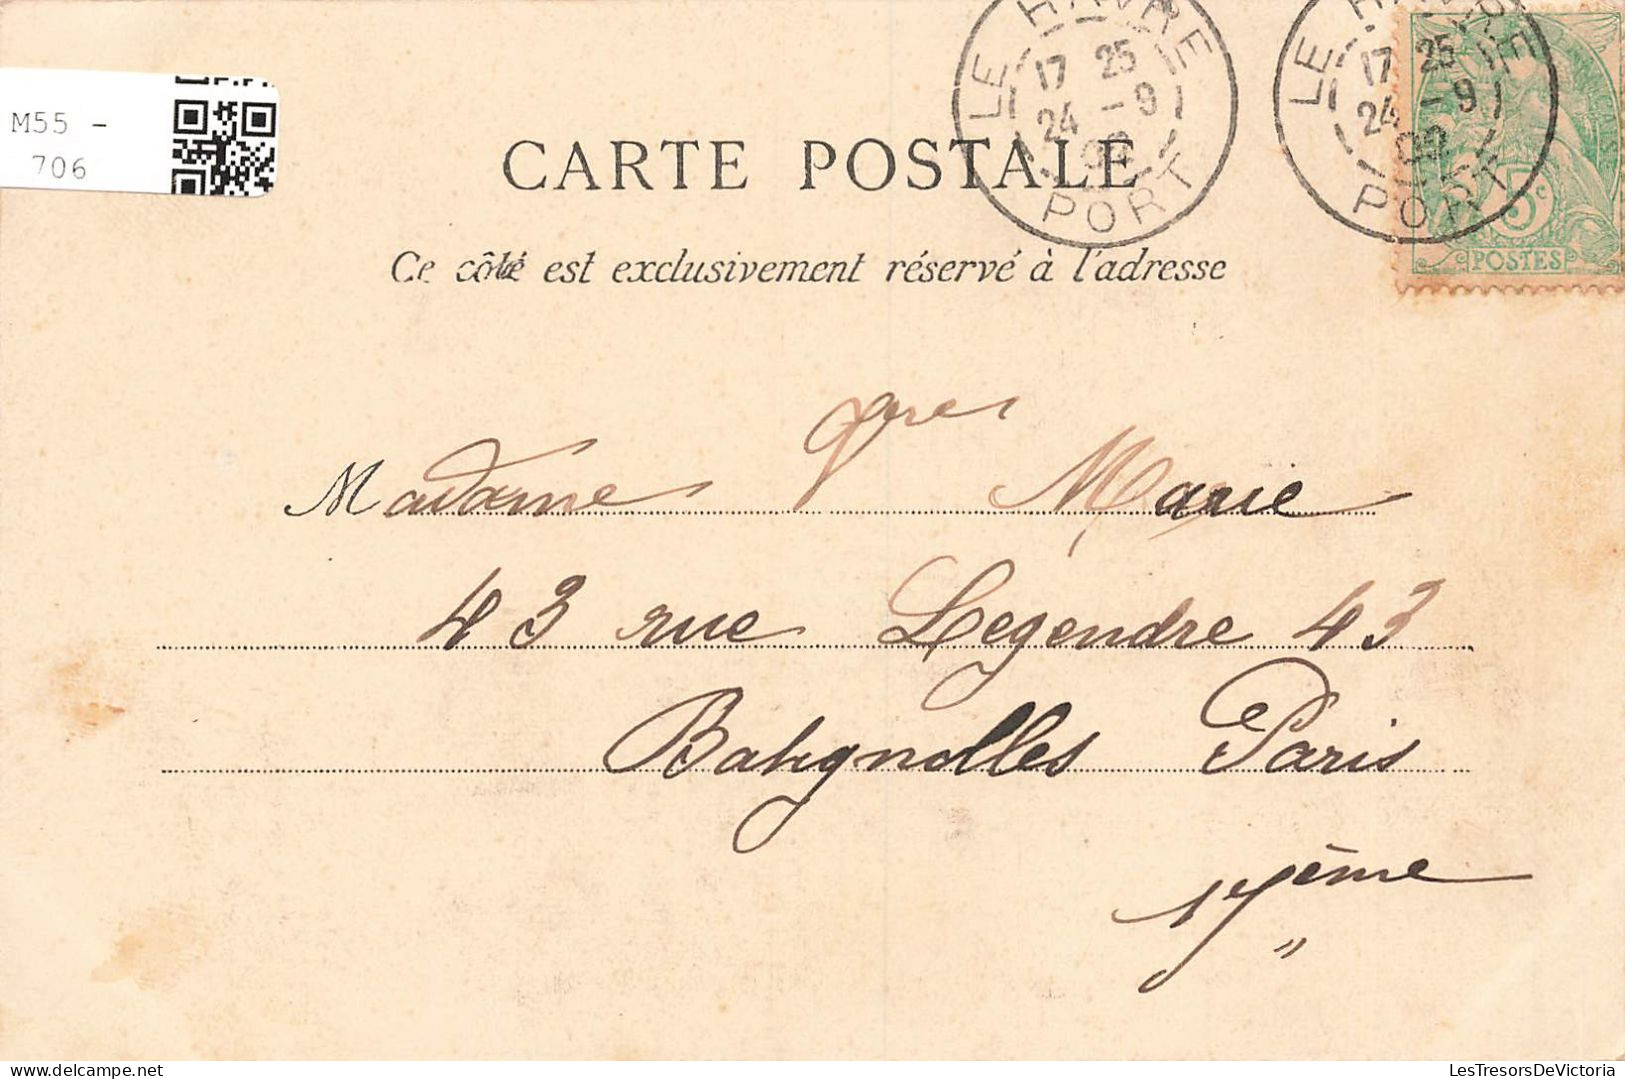 M55 -
706
CARTE POSTALE
Ce côté est exclusivement réservé à l'adresse
LE HAVRE
17 25
24 - 9
02
PORT
LE HAVRE
17 25
24 - 9
02
PORT
5c
POSTES
Madame Marie
43 rue Legendre 43
Batignolles Paris
17 ème
"
LesTresorsDeVictoria